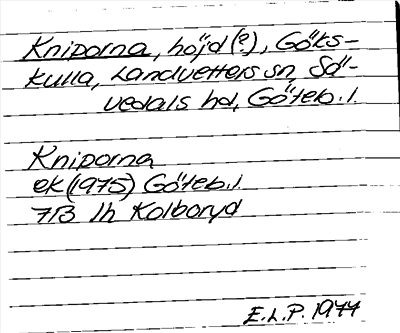 Kniporna, höjd (?), Göks-
kulla, Landvetters sn, Sä-
vedals hd, Göteb. l.
Kniporna
ek (1975) Göteb. l.
7B 1h Kolboryd
E.L.P. 1977